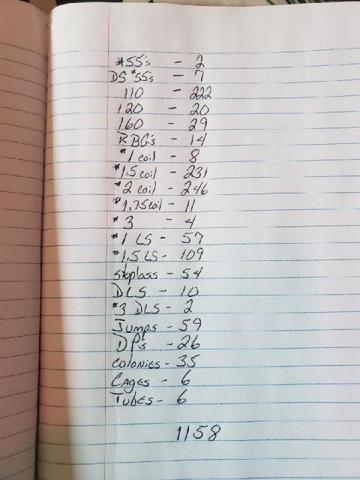 #55's - 2
DS #55's - 7
110 - 222
120 - 20
160 - 29
RBG's - 14
#1 coil - 8
#1.5 coil - 231
#2 coil - 246
#1.75 coil - 11
#3 - 4
#1 LS - 57
#1.5 LS - 109
Stoploss - 54
DLS - 10
#3 DLS - 2
Jumps - 59
DP's - 26
Colonies - 35
Cages - 6
Tubes - 6
1158